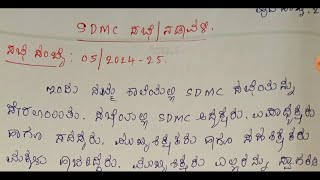 SDMC ಸಭೆ/ನಡಾವಳಿ.
ಸಭೆ ಸಂಖ್ಯೆ: 05/2024-25.
ಇಂದು ನಮ್ಮ ಶಾಲೆಯಲ್ಲಿ SDMC ಸಭೆಯನ್ನು
ಸಭೆಯಲ್ಲಿ SDMC ಅಧ್ಯಕ್ಷರು. ಉಪಾಧ್ಯಕ್ಷರು
ಹಾಗೂ ಸದಸ್ಯರು. ಮುಖ್ಯ ಶಿಕ್ಷಕರು ಹಾಗೂ ಸಹ ಶಿಕ್ಷಕರು
ಮುಖ್ಯ ಶಿಕ್ಷಕರು ಎಲ್ಲರನ್ನು